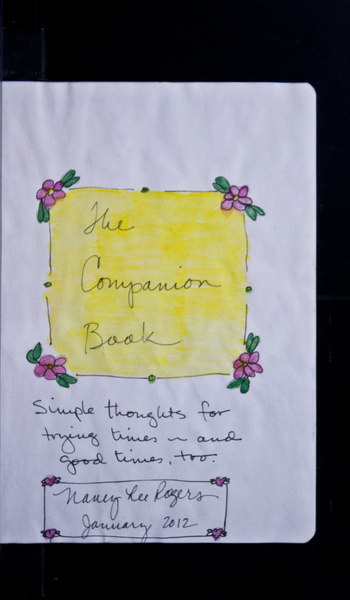 The
Companion
Book
Simple thoughts for
trying times ~ and
good times, too.
Nancy Lee Rogers
January 2012